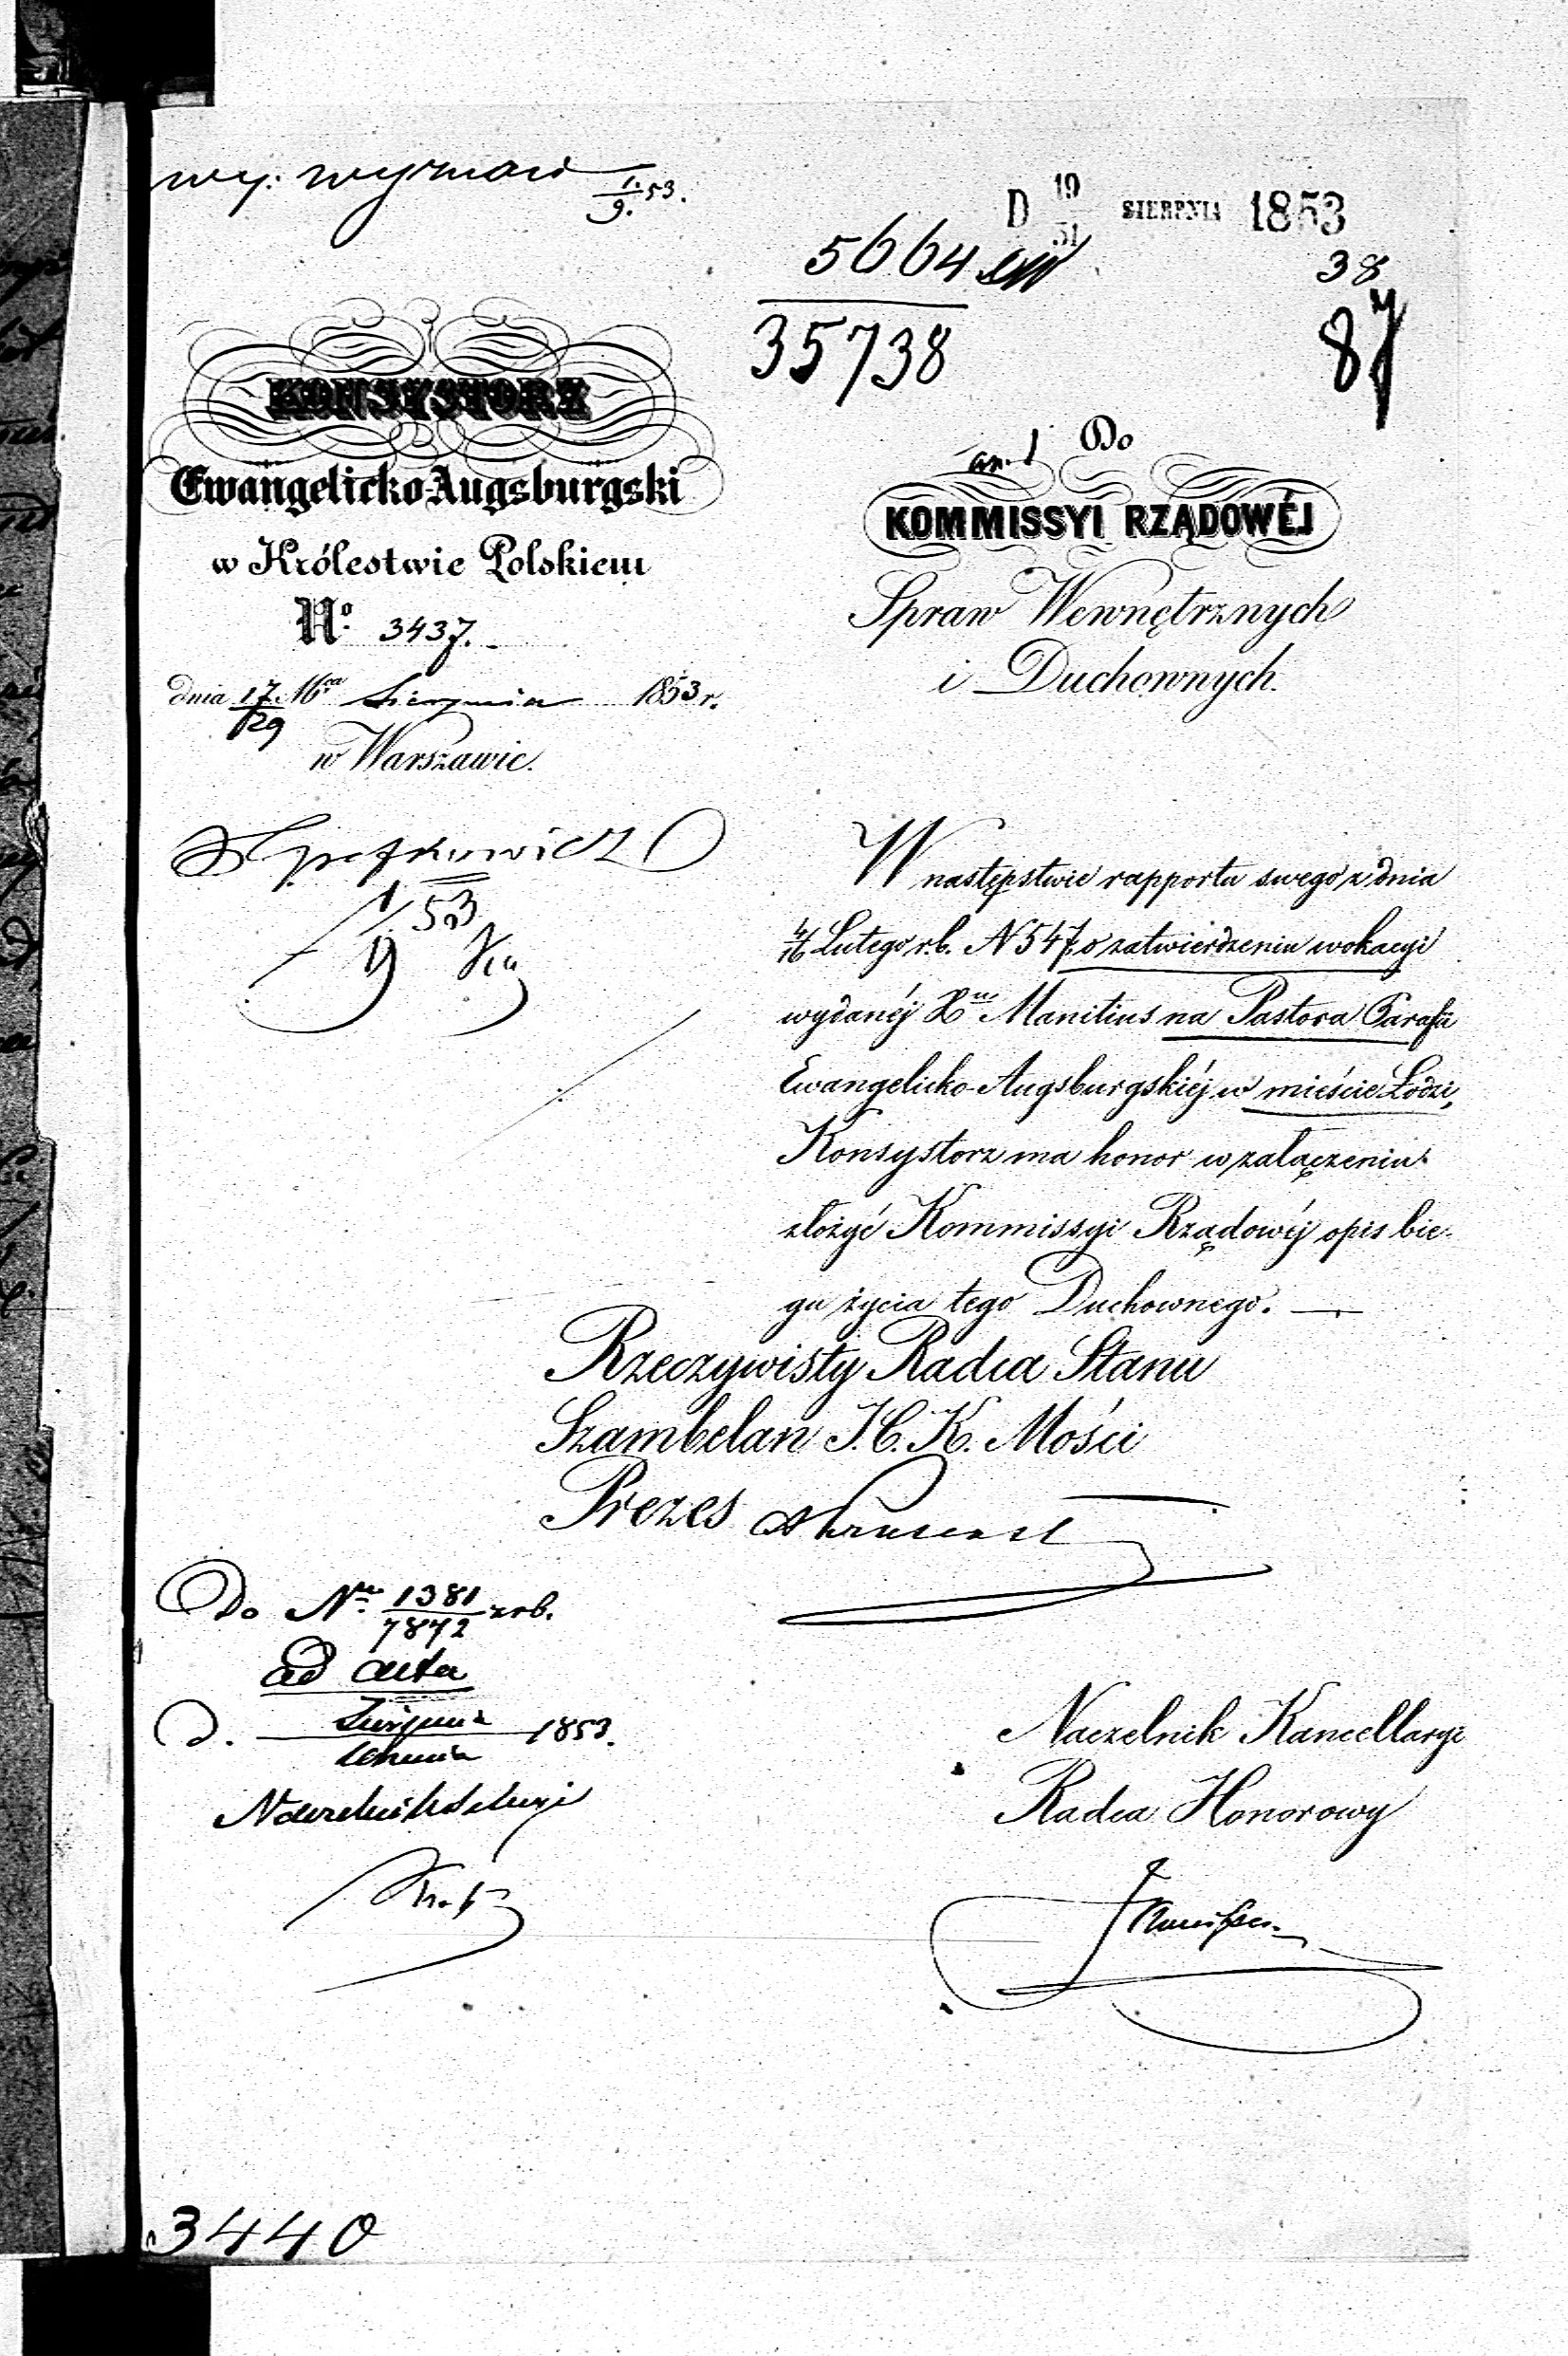 wy: wyznań 1/9. 53.
D 19/31 SIERPNIA 1853
5664
35738
38
87
KONSYSTORZ
Ewangelicko-Augsburgski
w Królestwie Polskiem
No. 3437.
dnia 17/29 Mca Sierpnia 1853 r.
w Warszawie.
1/9 53
an. 1 Do
KOMMISSYI RZĄDOWÉJ
Spraw Wewnętrznych
i Duchownych.
W następstwie rapportu swego z dnia
4/16 Lutego r.b. N 547, o zatwierdzeniu wokacyi
wydanéj Xu Manitius na Pastora Parafii
Ewangelicko-Augsburgskiéj w mieście Łodzi,
Konsystorz ma honor w załączeniu
złożyć Kommissyi Rządowéj opis bie-
gu życia tego Duchownego. —
Rzeczywisty Radca Stanu
Szambelan J. C. K. Mości
Prezes
Do Nru 1381/7872 z r b.
ad acta
d. Sierpnia/Września 1853.
Naczelnik Sekcyi
Naczelnik Kancellaryi
Radca Honorowy
3440